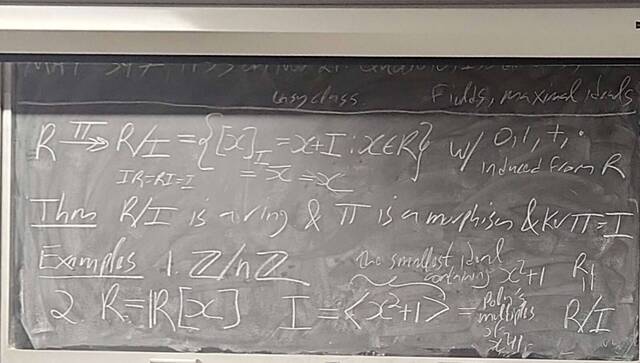 in class Fields, maximal ideals
R π→ R/I = {[x]_I = x+I : x∈R} w/ 0,1,+,·
IR=RI=I = x̄ = x induced from R
Thm R/I is a ring & π is a morphism & Ker π = I
Examples 1. ℤ/nℤ the smallest ideal containing x²+1 R
2. R=ℝ[x] I = <x²+1> = Poly's multiples of x²+1 R/I